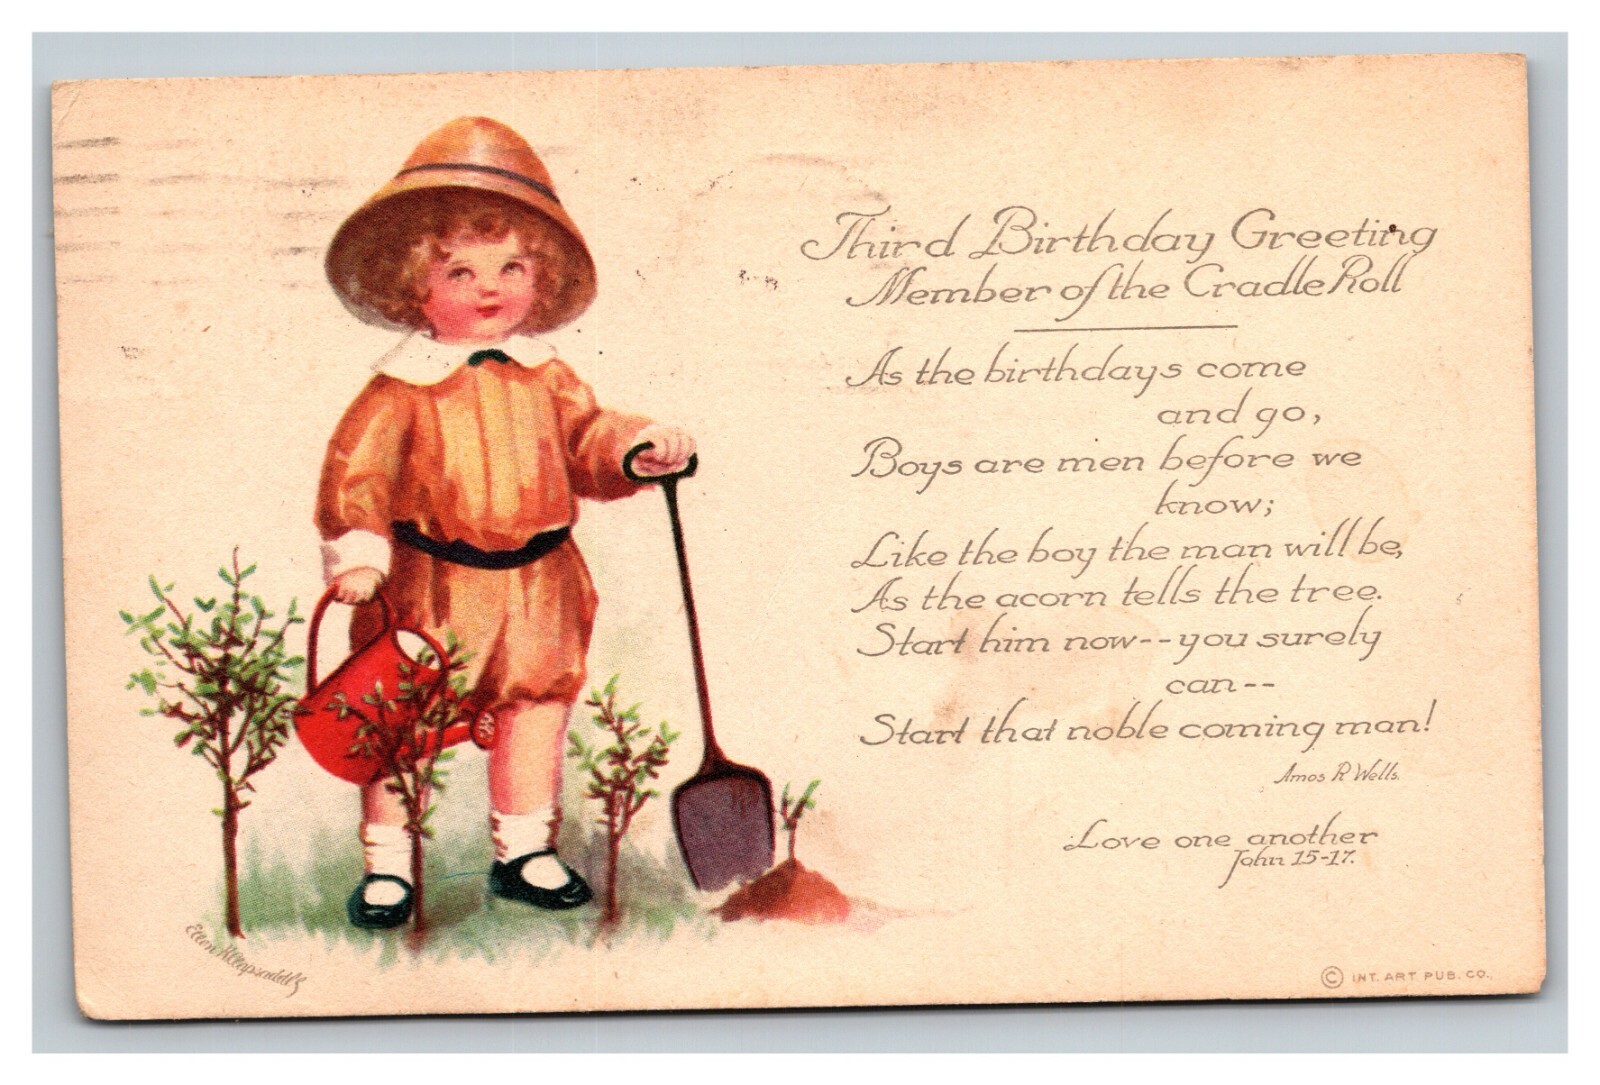 Third Birthday Greeting
Member of the Cradle Roll
As the birthdays come
and go,
Boys are men before we
know;
Like the boy the man will be,
As the acorn tells the tree.
Start him now--you surely
can--
Start that noble coming man!
Amos R. Wells.
Love one another
John 15-17.
Ellen H. Clapsaddle
© INT. ART PUB. CO.